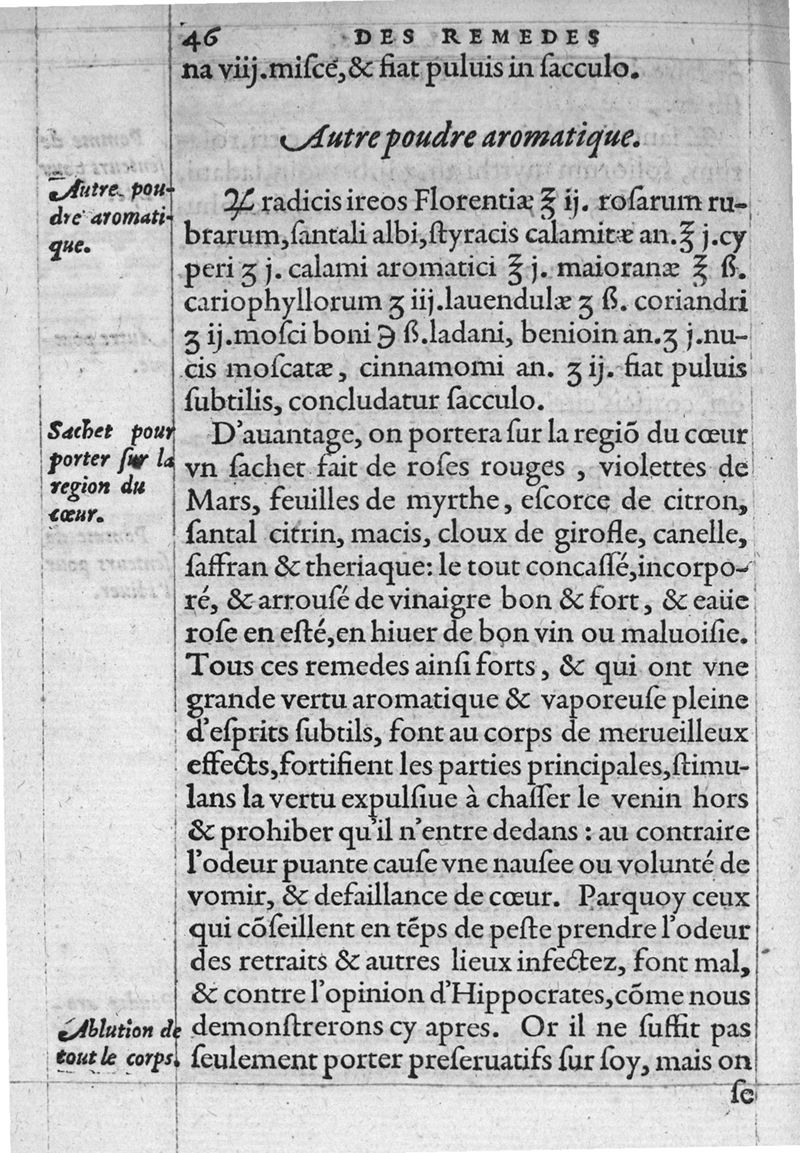 46 DES REMEDES
na viij.miſce,& fiat puluis in ſacculo.
Autre poudre aromatique.
Autre pou-
dre aromati-
que.
♃ radicis ireos Florentiæ ℥ ij. roſarum ru-
brarum,ſantali albi,ſtyracis calamitæ an.℥ j.cy
peri ʒ j. calami aromatici ℥ j. maioranæ ℥ ß.
cariophyllorum ʒ iij.lauendulæ ʒ ß. coriandri
ʒ ij.moſci boni ℈ ß.ladani, benioin an.ʒ j.nu-
cis moſcatæ, cinnamomi an. ʒ ij. fiat puluis
ſubtilis, concludatur ſacculo.
Sachet pour
porter ſur la
region du
cœur.
D'auantage, on portera ſur la regiõ du cœur
vn ſachet fait de roſes rouges , violettes de
Mars, feuilles de myrthe, eſcorce de citron,
ſantal citrin, macis, cloux de girofle, canelle,
ſaffran & theriaque: le tout concaſſé,incorpo-
ré, & arrouſé de vinaigre bon & fort, & eaüe
roſe en eſté,en hiuer de bon vin ou maluoiſie.
Tous ces remedes ainſi forts, & qui ont vne
grande vertu aromatique & vaporeuſe pleine
d'eſprits ſubtils, font au corps de merueilleux
effects,fortifient les parties principales,ſtimu-
lans la vertu expulſiue à chaſſer le venin hors
& prohiber qu'il n'entre dedans : au contraire
l'odeur puante cauſe vne nauſee ou volunté de
vomir, & defaillance de cœur. Parquoy ceux
qui cõſeillent en tẽps de peſte prendre l'odeur
des retraits & autres lieux infectez, font mal,
& contre l'opinion d'Hippocrates,cõme nous
demonſtrerons cy apres. Or il ne ſuffit pas
ſeulement porter preſeruatifs ſur ſoy, mais on
Ablution de
tout le corps.
ſe